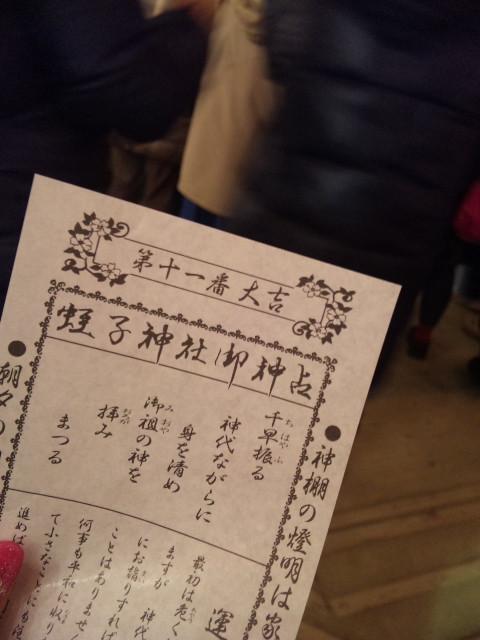 第十一番大吉
蛭子神社御神占
●神棚の燈明は家
千早振る
ちはやふ
神代ながらに
身を清め
御祖の神を
みおや
拝み
おが
まつる
●朝夕の
運
最初は
ますが 神代
にお詣りすれば
ことはありません
何事も平和に収り
て小さな
進めば